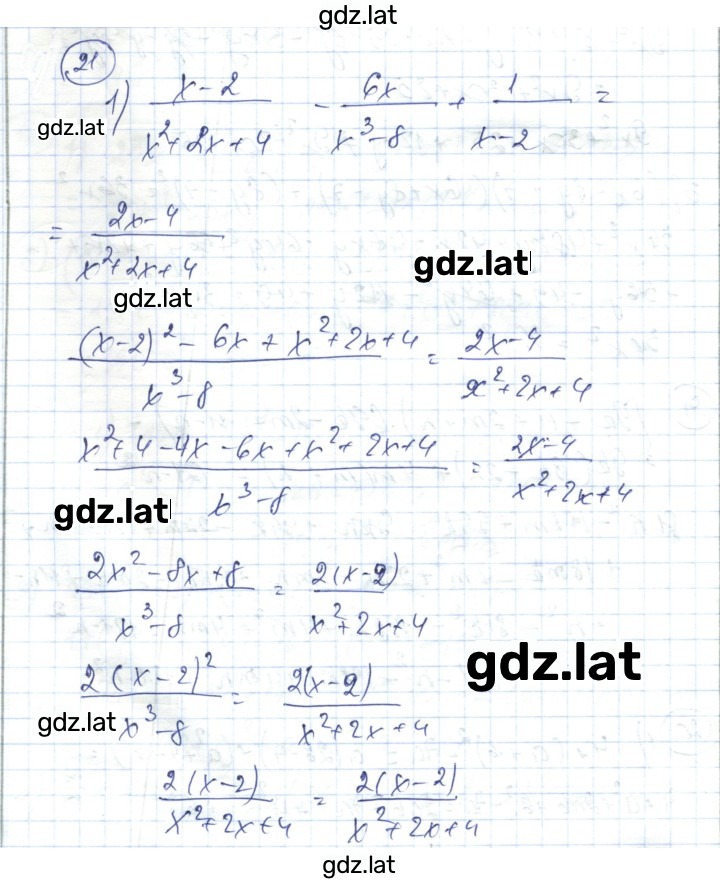 gdz.lat
21
1) (x-2)/(x²+2x+4) - 6x/(x³-8) + 1/(x-2) =
gdz.lat
= (2x-4)/(x²+2x+4)
gdz.lat
gdz.lat
((x-2)² - 6x + x²+2x+4)/(x³-8) = (2x-4)/(x²+2x+4)
(x²+4-4x-6x+x²+2x+4)/(x³-8) = (2x-4)/(x²+2x+4)
gdz.lat
(2x²-8x+8)/(x³-8) = 2(x-2)/(x²+2x+4)
gdz.lat
2(x-2)²/(x³-8) = 2(x-2)/(x²+2x+4)
gdz.lat
2(x-2)/(x²+2x+4) = 2(x-2)/(x²+2x+4)
gdz.lat